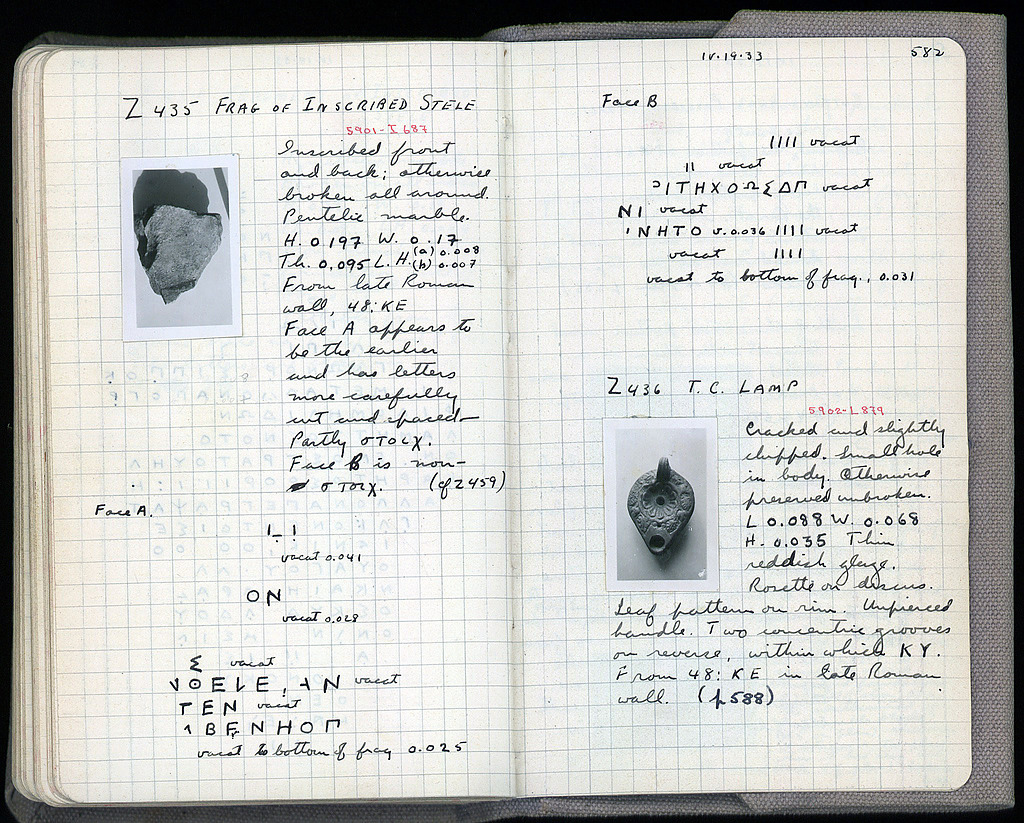 Z 435 FRAG OF INSCRIBED STELE
5901-I 687
Inscribed front
and back; otherwise
broken all around.
Pentelic marble.
H. 0.197 W. 0.17
Th. 0.095 L. H. (a) 0.008
(b) 0.007
From late Roman
wall, 48:KE
Face A appears to
be the earlier
and has letters
more carefully
cut and spaced
Partly στοιχ.
Face B is non-
στοιχ. (cf Z 459)
Face A.
vacat 0.041
ΟΝ
vacat 0.028
Σ vacat
vacat
ΤΕΝ vacat
ΒΕΝΗΟΠ
vacat to bottom of frag 0.025
IV.19.33
582
Face B
IIII vacat
II vacat
ΙΤΗΧΟΩΣΔΠ vacat
ΝΙ vacat
ΝΗΤΟ v. 0.036 IIII vacat
vacat IIII
vacat to bottom of frag., 0.031
Z 436 T.C. LAMP
5902-L 879
Cracked and slightly
chipped. Small hole
in body. Otherwise
preserved unbroken.
L 0.088 W. 0.068
H. 0.035 Thin
reddish glaze.
Rosette on discus.
Leaf pattern on rim. Unpierced
handle. Two concentric grooves
on reverse, within which KY.
From 48: KE in late Roman
wall. (p 588)